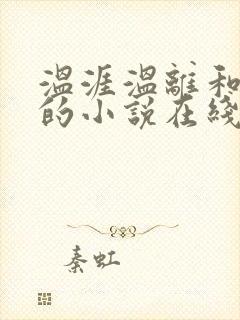 温涯温離和
的小説在綫
秦虹